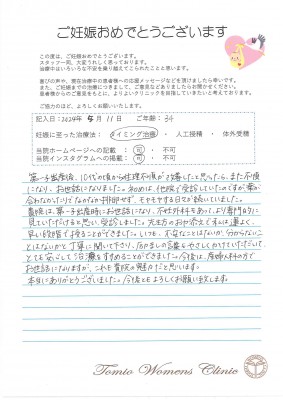 ご妊娠おめでとうございます
この度は、ご妊娠おめでとうございます。
スタッフ一同、大変うれしく思っております。
治療中はいろいろな不安を乗り越えてこられたことと思います。
喜びの声や、現在治療中の患者様への応援メッセージなどを頂けましたら幸いです。
また、ご妊娠までの治療につきまして、ご意見などございましたらお書きください。
患者様からのご意見をもとに、よりよいクリニックを目指していきたいと考えております。
ご協力のほど、よろしくお願いいたします。
記入日：2024年 5月 11日 ご年齢：34
妊娠に至った治療法： タイミング治療 ・ 人工授精 ・ 体外受精
当院ホームページへの記載 ： 可 ・ 不可
当院インスタグラムへの掲載 ： 可 ・ 不可
第一子出産後、10代の頃から生理不順が改善したと思ったら、また不順
になり、お世話になりました。初めは、他院で受診していたのですが薬が
合わなかったりでなかなか排卵せず、モヤモヤする日々が続いていました。
貴院は、第一子出産時にお世話になり、不妊外科もあって、より専門的に
見ていただけると思い、受診しました。先生方のお力添えで私も運よく、
早い段階で授かることができました。いつも、不安なことはないか、分からないこ
とはないかと丁寧に聞いて下さり、励ましの言葉もやさしくかけていただいて、
とても安心して治療をすすめることができました。今後は、産婦人科の方で
お世話になりますが、これも貴院の魅力だと思います。
本当にありがとうございました。今後ともよろしくお願い致します。
Tomio Womens Clinic